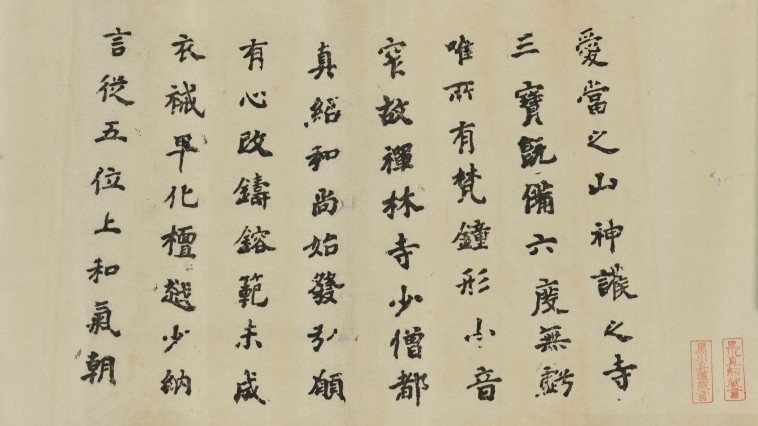 爰當之山神護之寺
三寶既備六度無虧
唯所有梵鐘形小音
窄故禪林寺少僧都
真紹和尚始發弘願
有心改鑄鎔範未成
衣祴早化檀越少納
言從五位上和氣朝